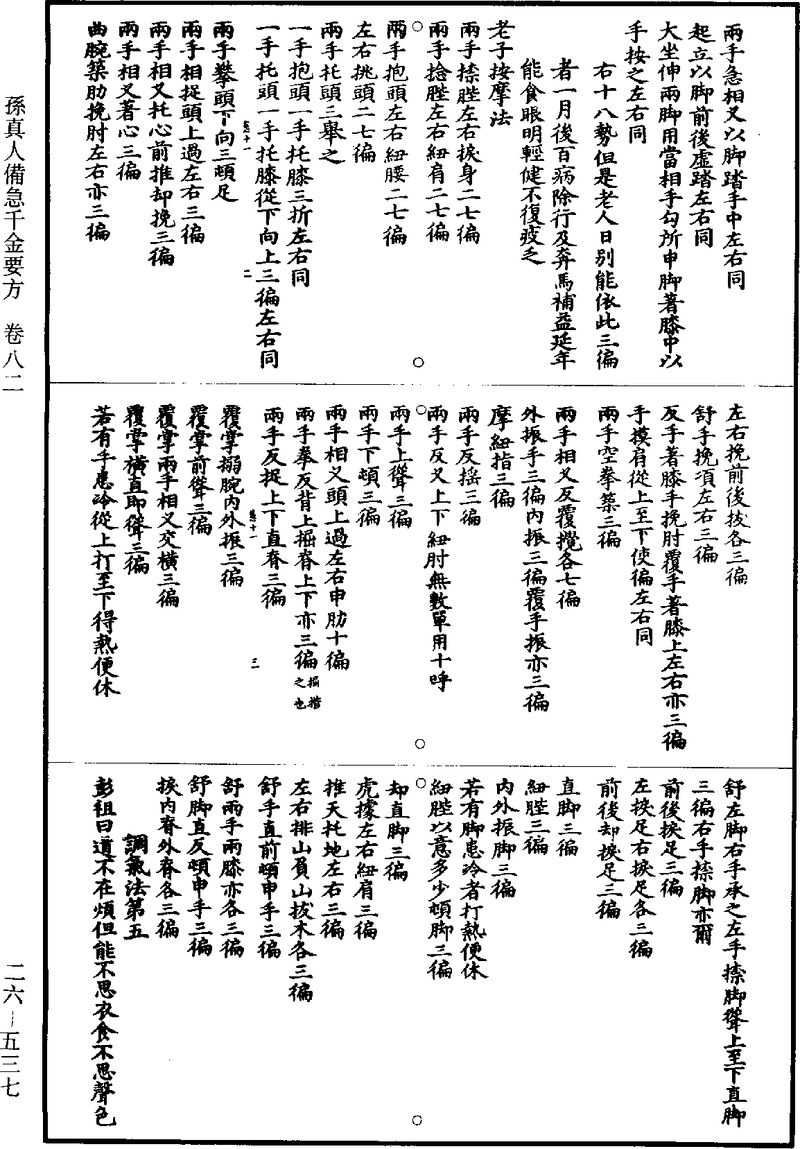 兩手急相叉以脚踏手中左右同
起立以脚前後虛踏左右同
大坐伸兩脚用當相手勾所申脚著膝中以
手按之左右同
右十八勢但是老人日別能依此三徧
者一月後百病除行及奔馬補益延年
能食眼明輕健不復疲乏
老子按摩法
兩手捺䏶左右捩身二七徧
兩手捻䏶左右紐肩二七徧
兩手抱頭左右紐腰二七徧
左右挑頭二七徧
兩手托頭三舉之
一手抱頭一手托膝三折左右同
一手托頭一手托膝從下向上三徧左右同
二
兩手攀頭下向三頓足
兩手相捉頭上過左右三徧
兩手相叉托心前推却挽三徧
兩手相叉著心三徧
曲腕築肋挽肘左右亦三徧
左右挽前後拔各三徧
舒手挽項左右三徧
反手著膝手挽肘覆手著膝上左右亦三徧
手摸肩從上至下使徧左右同
兩手空拳築三徧
兩手相叉反覆攪各七徧
外振手三徧內振三徧覆手振亦三徧
摩紐指三徧
兩手反搖三徧
兩手反叉上下紐肘無數單用十呼
兩手上聳三徧
兩手下頓三徧
兩手相叉頭上過左右申肋十徧
兩手拳反背上掘脊上下亦三徧掘揩之也
兩手反捉上下直脊三徧
三
覆掌搦腕內外振三徧
覆掌前聳三徧
覆掌兩手相叉交橫三徧
覆掌橫直即聳三徧
若有手患冷從上打至下得熱便休
舒左脚右手承之左手捺脚聳上至下直脚
三徧右手捺脚亦爾
前後捩足三徧
左捩足右捩足各三徧
前後却捩足三徧
直脚三徧
紐䏶三徧
內外振脚三徧
若有脚患冷者打熱便休
紐䏶以意多少頓脚三徧
却直脚三徧
虎據左右紐肩三徧
推天托地左右三徧
左右排山負山拔木各三徧
舒手直前頓申手三徧
舒兩手兩膝亦各三徧
舒脚直反頓申手三徧
捩內脊外脊各三徧
調氣法第五
彭祖曰道不在煩但能不思衣食不思聲色
孫真人備急千金要方　卷八二
二六—五三七